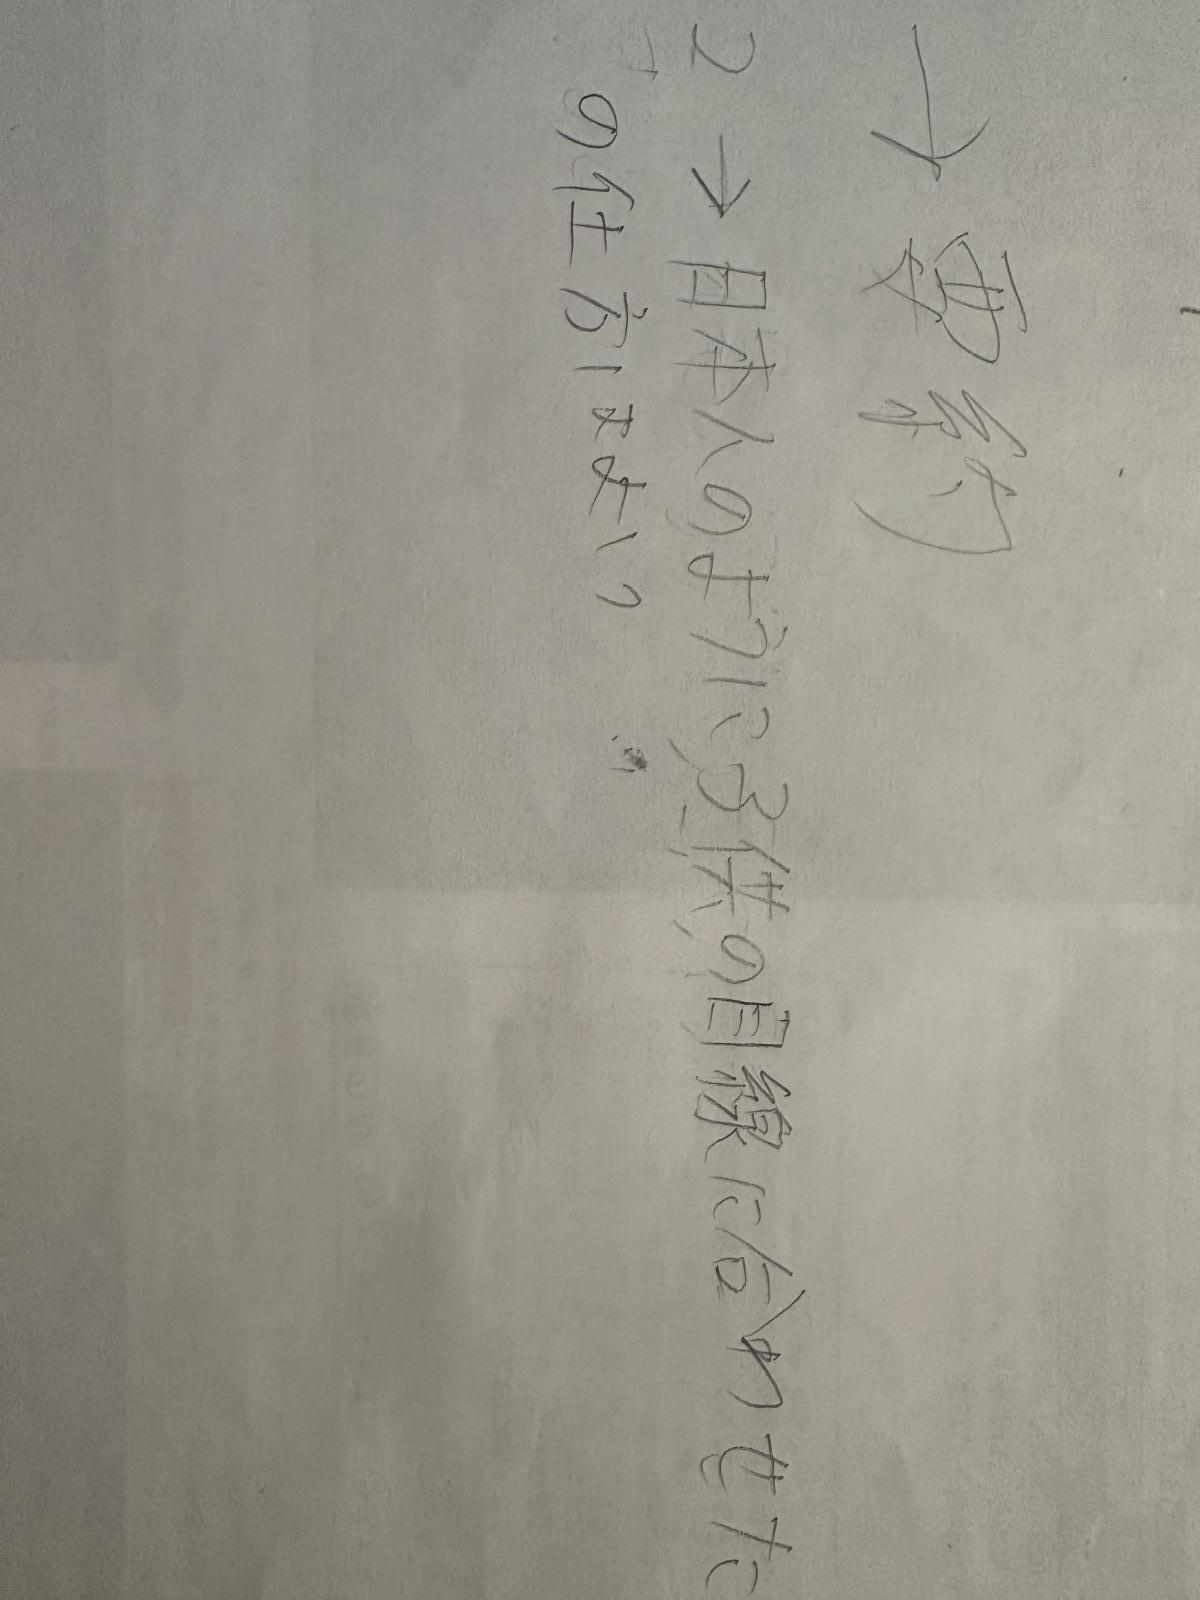 → 要約
2 → 日本人のように子供の目線に合わせた
の仕方はよい